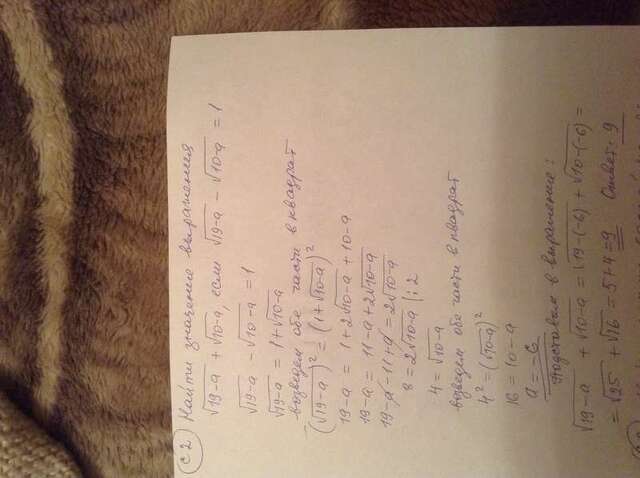 С2 Найти значение выражения
√19-a + √10-a, если √19-a - √10-a = 1
√19-a - √10-a = 1
√19-a = 1+√10-a
возведем обе части в квадрат
(√19-a)² = (1+√10-a)²
19-a = 1+2√10-a + 10-a
19-a = 11-a+2√10-a
19-a-11+a = 2√10-a
8 = 2√10-a |:2
4 = √10-a
возведем обе части в квадрат
4² = (√10-a)²
16 = 10-a
a = -6
Подставим в выражение:
√19-a + √10-a = √19-(-6) + √10-(-6) =
= √25 + √16 = 5+4=9 Ответ: 9